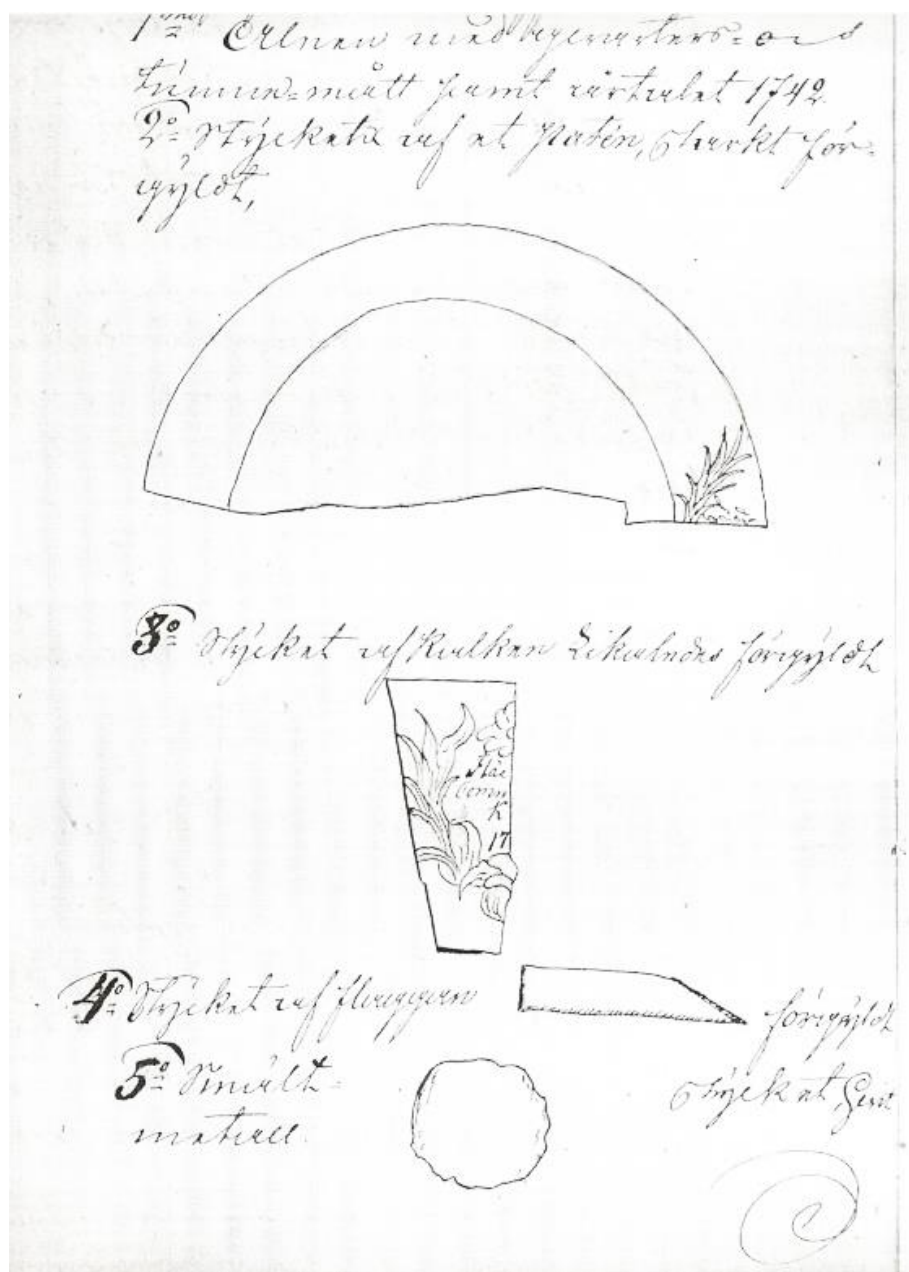 1º Alnen med qvarters= o
tumme=mått samt årtalet 1742.
2º Stycket af et patén, starkt för-
gyldt,
3º Stycket af kalken Likaledes förgyldt
K
17
4º Stycket af flaggan förgyldt
5º Smält- Stycket
metall.